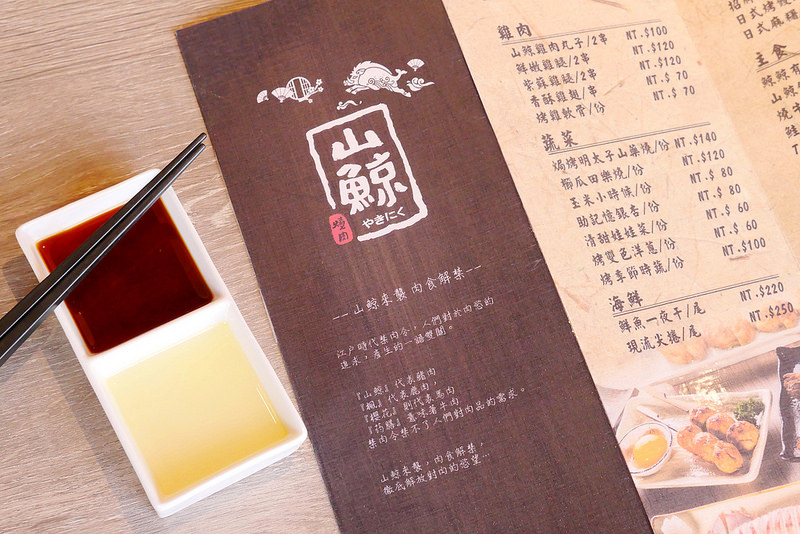 山鯨
やきにく
燒肉
--山鯨來襲 肉食解禁--
江戶時代禁肉令，人們對於肉慾的
追求，產生的一語雙關。
『山鯨』代表豬肉
『楓』代表鹿肉，
『櫻花』則代表馬肉
『药膳』意味著牛肉
禁肉令禁不了人們對肉品的需求。
山鯨來襲，肉食解禁，
徹底解放對肉的慾望...
雞肉
山鯨雞肉丸子/2串 NT.$100
鮮嫩雞腿/2串 NT.$120
紫蘇雞腿/2串 NT.$120
香酥雞翅/串 NT.$ 70
烤雞軟骨/份 NT.$ 70
蔬菜
焗烤明太子山藥燒/份 NT.$140
櫛瓜田樂燒/份 NT.$120
玉米小時候/份 NT.$ 80
助記憶銀杏/份 NT.$ 80
清甜娃娃菜/份 NT.$ 60
烤雙色洋蔥/份 NT.$ 60
烤季節時蔬/份 NT.$100
海鮮
鮮魚一夜干/尾 NT.$220
現流尖捲/尾 NT.$250
日式烤
日式麻糬
主食